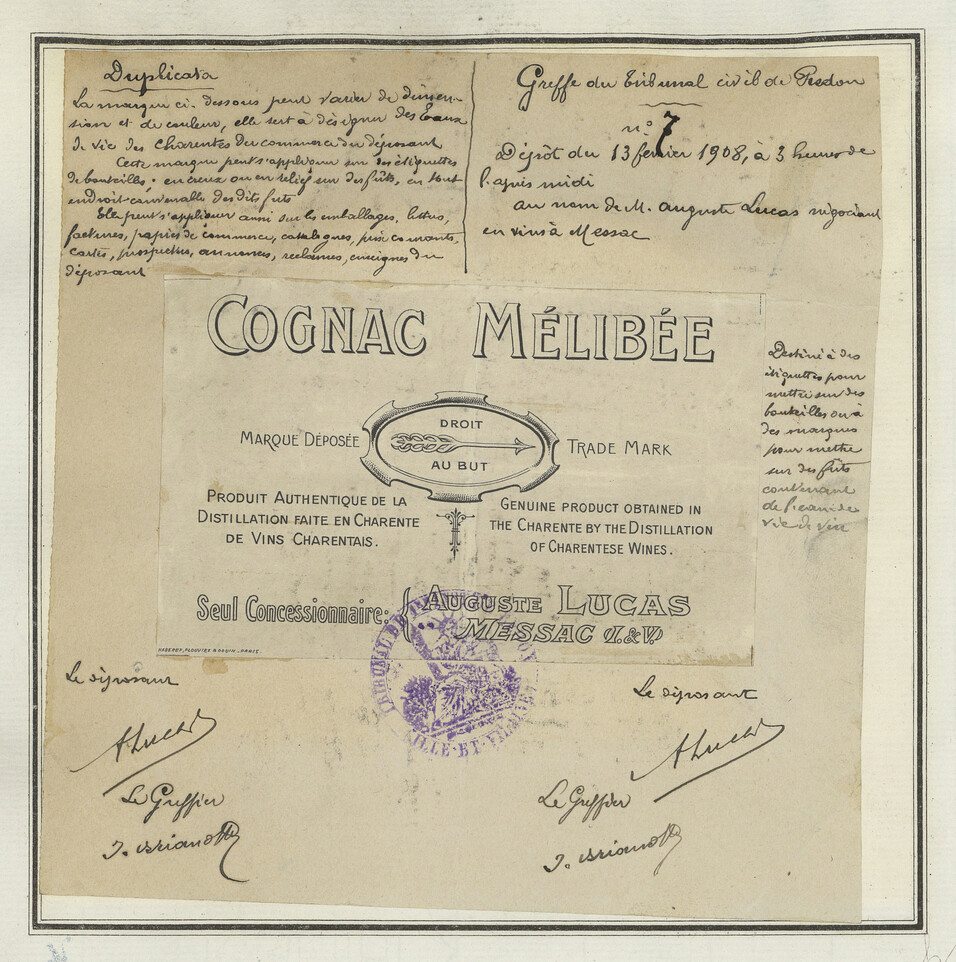 Duplicata
La marque ci-dessous peut varier de dimen-
sion et de couleur, elle sert à désigner des Eaux
de vie des Charentes du commerce du déposant
Cette marque peut s'appliquer sur les étiquettes
de bouteilles; en creux ou en relief sur des fûts, en tout
endroit convenable des dits fûts
Elle peut s'appliquer aussi sur les emballages, lettres,
factures, papiers de commerce, catalogues, prix courants,
cartes, prospectus, annonces, réclames, enseignes du
déposant
Greffe du Tribunal civil de Redon
n° 7
Dépôt du 13 février 1908, à 3 heures de
l'après midi
au nom de M. Auguste Lucas négociant
en vins à Messac
COGNAC MÉLIBÉE
MARQUE DÉPOSÉE
DROIT
AU BUT
TRADE MARK
PRODUIT AUTHENTIQUE DE LA
DISTILLATION FAITE EN CHARENTE
DE VINS CHARENTAIS.
GENUINE PRODUCT OBTAINED IN
THE CHARENTE BY THE DISTILLATION
OF CHARENTESE WINES.
Seul Concessionnaire:
AUGUSTE LUCAS
MESSAC (I.&V.)
PLOUVIER & PARIS
Destiné à des
étiquettes pour
mettre sur des
bouteilles ou à
des marques
pour mettre
sur des fûts
contenant
de l'eau de
vie de vin
TRIBUNAL DE
ILLE-ET-VILAINE
Le déposant
A Lucas
Le Greffier
Le déposant
A Lucas
Le Greffier